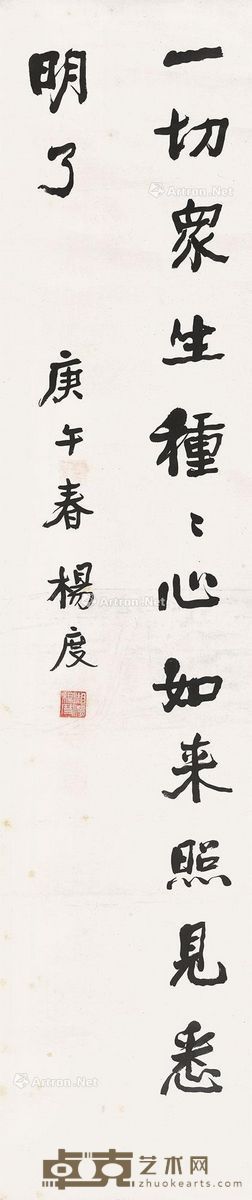 一切眾生種〻心如来照見悉
明了
庚午春楊度
Artron.Net
Artron.Net
Artron.Net
Artron.Net
卓克艺术网
zhuokearts.com